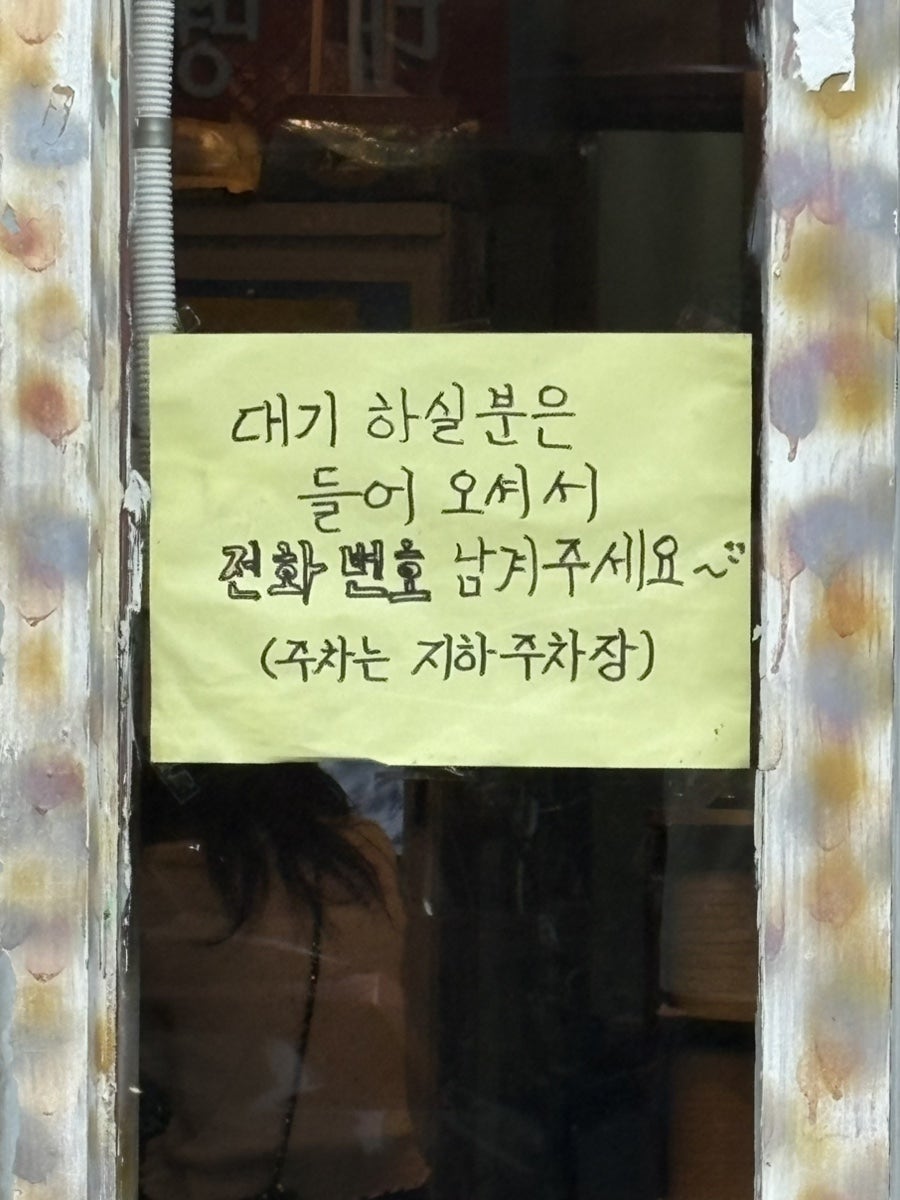 대기 하실분은
들어 오셔서
전화 번호 남겨주세요~
(주차는 지하주차장)